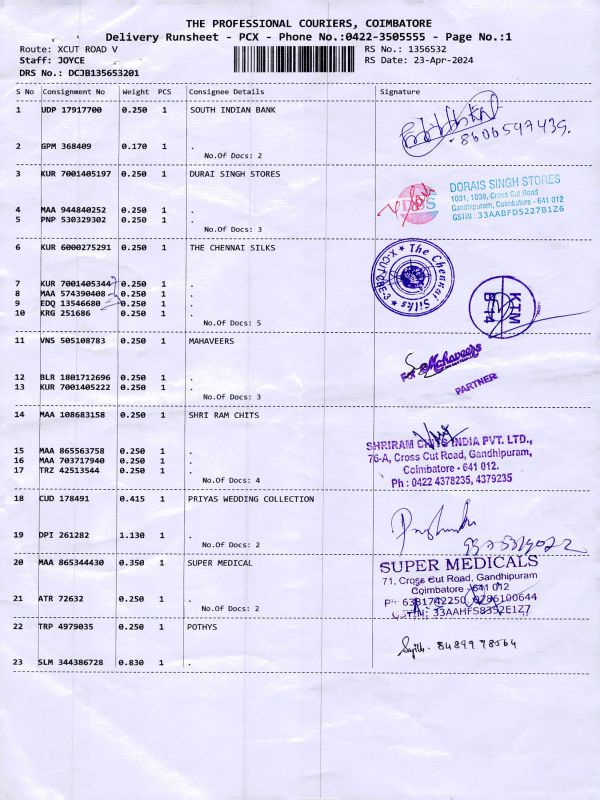 THE PROFESSIONAL COURIERS, COIMBATORE
Delivery Runsheet - PCX - Phone No.:0422-3505555 - Page No.:1
Route: XCUT ROAD V RS No.: 1356532
Staff: JOYCE RS Date: 23-Apr-2024
DRS No.: DCJB135653201
S No Consignment No Weight PCS Consignee Details Signature
1 UDP 17917700 0.250 1 SOUTH INDIAN BANK
8606597439.
2 GPM 368409 0.170 1 .
No.Of Docs: 2
3 KUR 7001405197 0.250 1 DURAI SINGH STORES
DORAIS SINGH STORES
1031, 1038, Cross Cut Road
Gandhipuram, Coimbatore - 641 012
GSTIN : 33AABFD5227B1Z6
4 MAA 944840252 0.250 1 .
5 PNP 530329302 0.250 1 .
No.Of Docs: 3
6 KUR 6000275291 0.250 1 THE CHENNAI SILKS
The Chennai Silks
KTM
B-14
7 KUR 7001405344 0.250 1 .
8 MAA 574390408 0.250 1 .
9 EDQ 13546680 0.250 1 .
10 KRG 251686 0.250 1 .
No.Of Docs: 5
11 VNS 505108783 0.250 1 MAHAVEERS
For Mahaveers
PARTNER
12 BLR 1801712696 0.250 1 .
13 KUR 7001405222 0.250 1 .
No.Of Docs: 3
14 MAA 108683158 0.250 1 SHRI RAM CHITS
SHRIRAM CHITS INDIA PVT. LTD.,
76-A, Cross Cut Road, Gandhipuram,
Coimbatore - 641 012.
Ph : 0422 4378235, 4379235
15 MAA 865563758 0.250 1 .
16 MAA 703717940 0.250 1 .
17 TRZ 42513544 0.250 1 .
No.Of Docs: 4
18 CUD 178491 0.415 1 PRIYAS WEDDING COLLECTION
19 DPI 261282 1.130 1 .
No.Of Docs: 2
20 MAA 865344430 0.350 1 SUPER MEDICAL
SUPER MEDICALS
71, Cross Cut Road, Gandhipuram
Coimbatore - 641 012
Ph : 6381742250, 9786100644
GSTIN: 33AAHFS8352E1Z7
21 ATR 72632 0.250 1 .
No.Of Docs: 2
22 TRP 4979035 0.250 1 POTHYS
8489978564
23 SLM 344386728 0.830 1 .